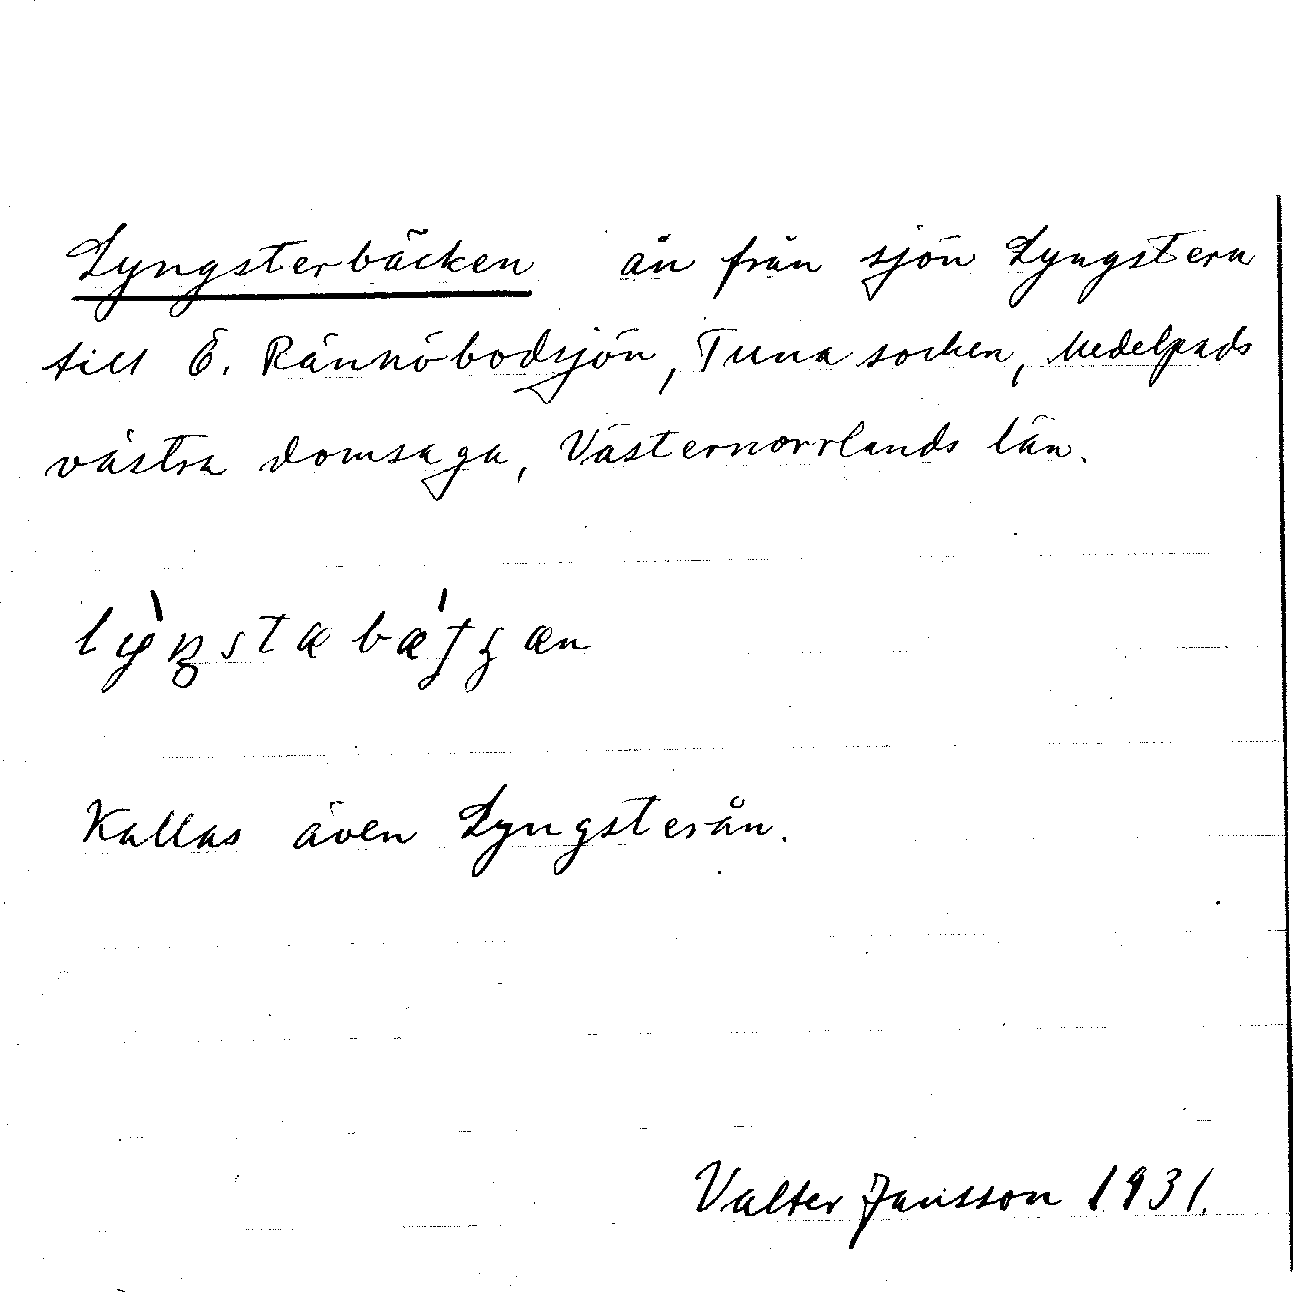 Lyngsterbäcken ån från sjön Lyngstern
till Ö. Rännöbodsjön, Tuna socken, Medelpads
västra domsaga, Västernorrlands län.
Kallas även Lyngsterån.
Valter Jansson 1931.